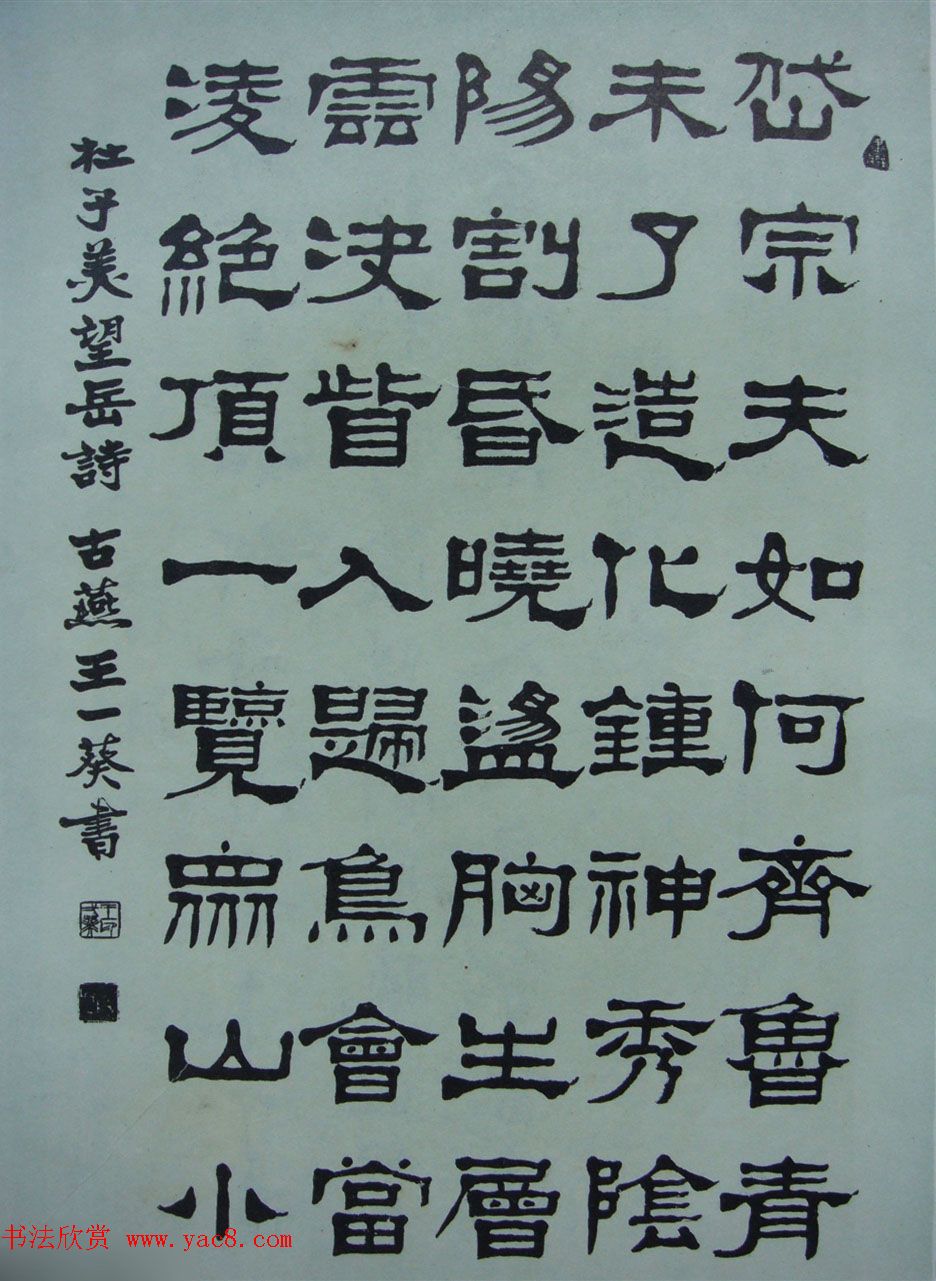 岱宗夫如何齊魯青
未了造化鍾神秀陰
陽割昏曉盪胸生層
雲決眥入歸鳥會當
凌絕頂一覽眾山小
杜子美望岳詩 古燕王一葵書
书法欣赏 www.yac8.com